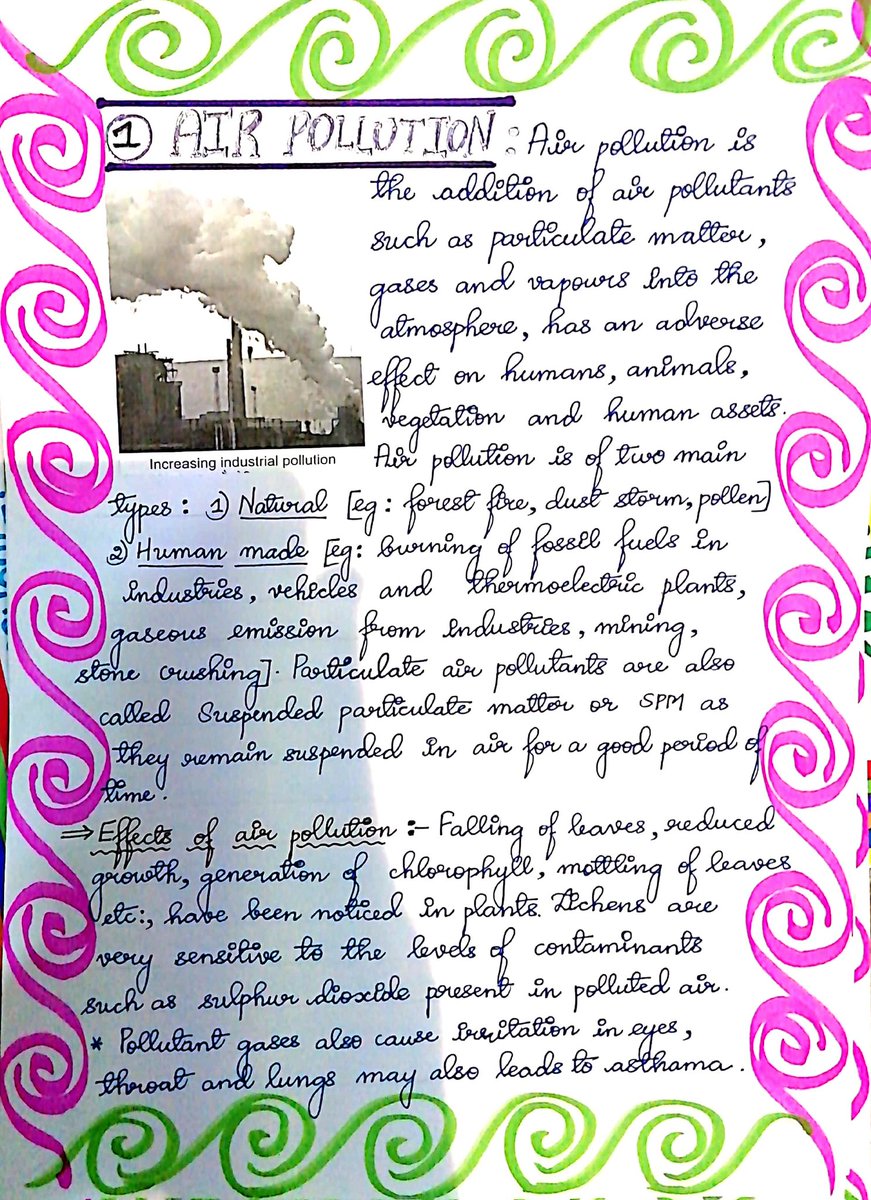 ① AIR POLLUTION : Air pollution is
the addition of air pollutants
such as particulate matter,
gases and vapours into the
atmosphere, has an adverse
effect on humans, animals,
vegetation and human assets.
Increasing industrial pollution
Air pollution is of two main
types : 1) Natural [eg : forest fire, dust storm, pollen]
2) Human made [eg: burning of fossil fuels in
industries, vehicles and thermoelectric plants,
gaseous emission from industries, mining,
stone crushing]. Particulate air pollutants are also
called Suspended particulate matter or SPM as
they remain suspended in air for a good period of
time.
⇒ Effects of air pollution :- Falling of leaves, reduced
growth, generation of chlorophyll, mottling of leaves
etc:, have been noticed in plants. are
very sensitive to the levels of contaminants
such as sulphur dioxide present in polluted air.
* Pollutant gases also cause irritation in eyes,
throat and lungs may also leads to asthama.